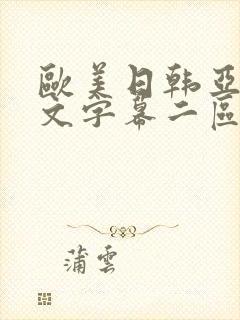 歐美日韩亞
文字幕二區
蒲雲